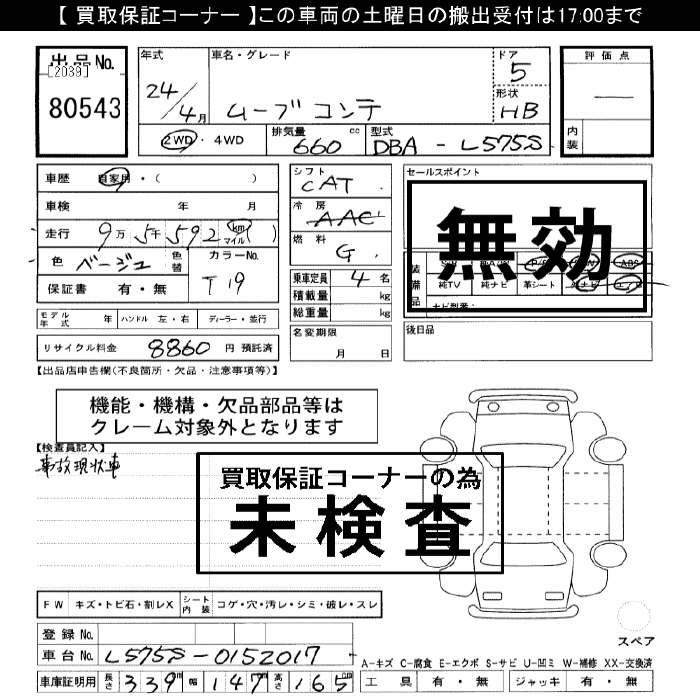 【 買取保証コーナー 】この車両の土曜日の搬出受付は17:00まで
出品No.
[2039]
80543
年式
24/4月
車名・グレード
ムーブコンテ
ドア
5
形状
HB
評価点
―
内装
2WD・4WD
排気量
660 cc
型式
DBA - L575S
車歴 自家用・( )
車検 年 月
走行 9万5千592 km マイル ( )
色 ベージュ 色替
カラーNo.
T19
保証書 有・無
シフト
CAT
冷房
AAC
燃料
G
乗車定員 4 名
積載量 kg
総重量 kg
名変期限
月 日
セールスポイント
無効
装備品
純TV 純ナビ 革シート
ABS
後日品
モデル年式 年 ハンドル 左・右 ディーラー・並行
リサイクル料金 8860 円 預託済
【出品店申告欄(不良箇所・欠品・注意事項等)】
機能・機構・欠品部品等は
クレーム対象外となります
【検査員記入】
事故現状車
買取保証コーナーの為
未検査
FW キズ・トビ石・割レX シート内装 コゲ・穴・汚レ・シミ・破レ・スレ
登録No.
車台No. L575S-0152017
車庫証明用 長さ 339 幅 147 高さ 165 cm
スペア
A-キズ C-腐食 E-エクボ S-サビ U-凹ミ W-補修 XX-交換済
工具 有・無 ジャッキ 有・無